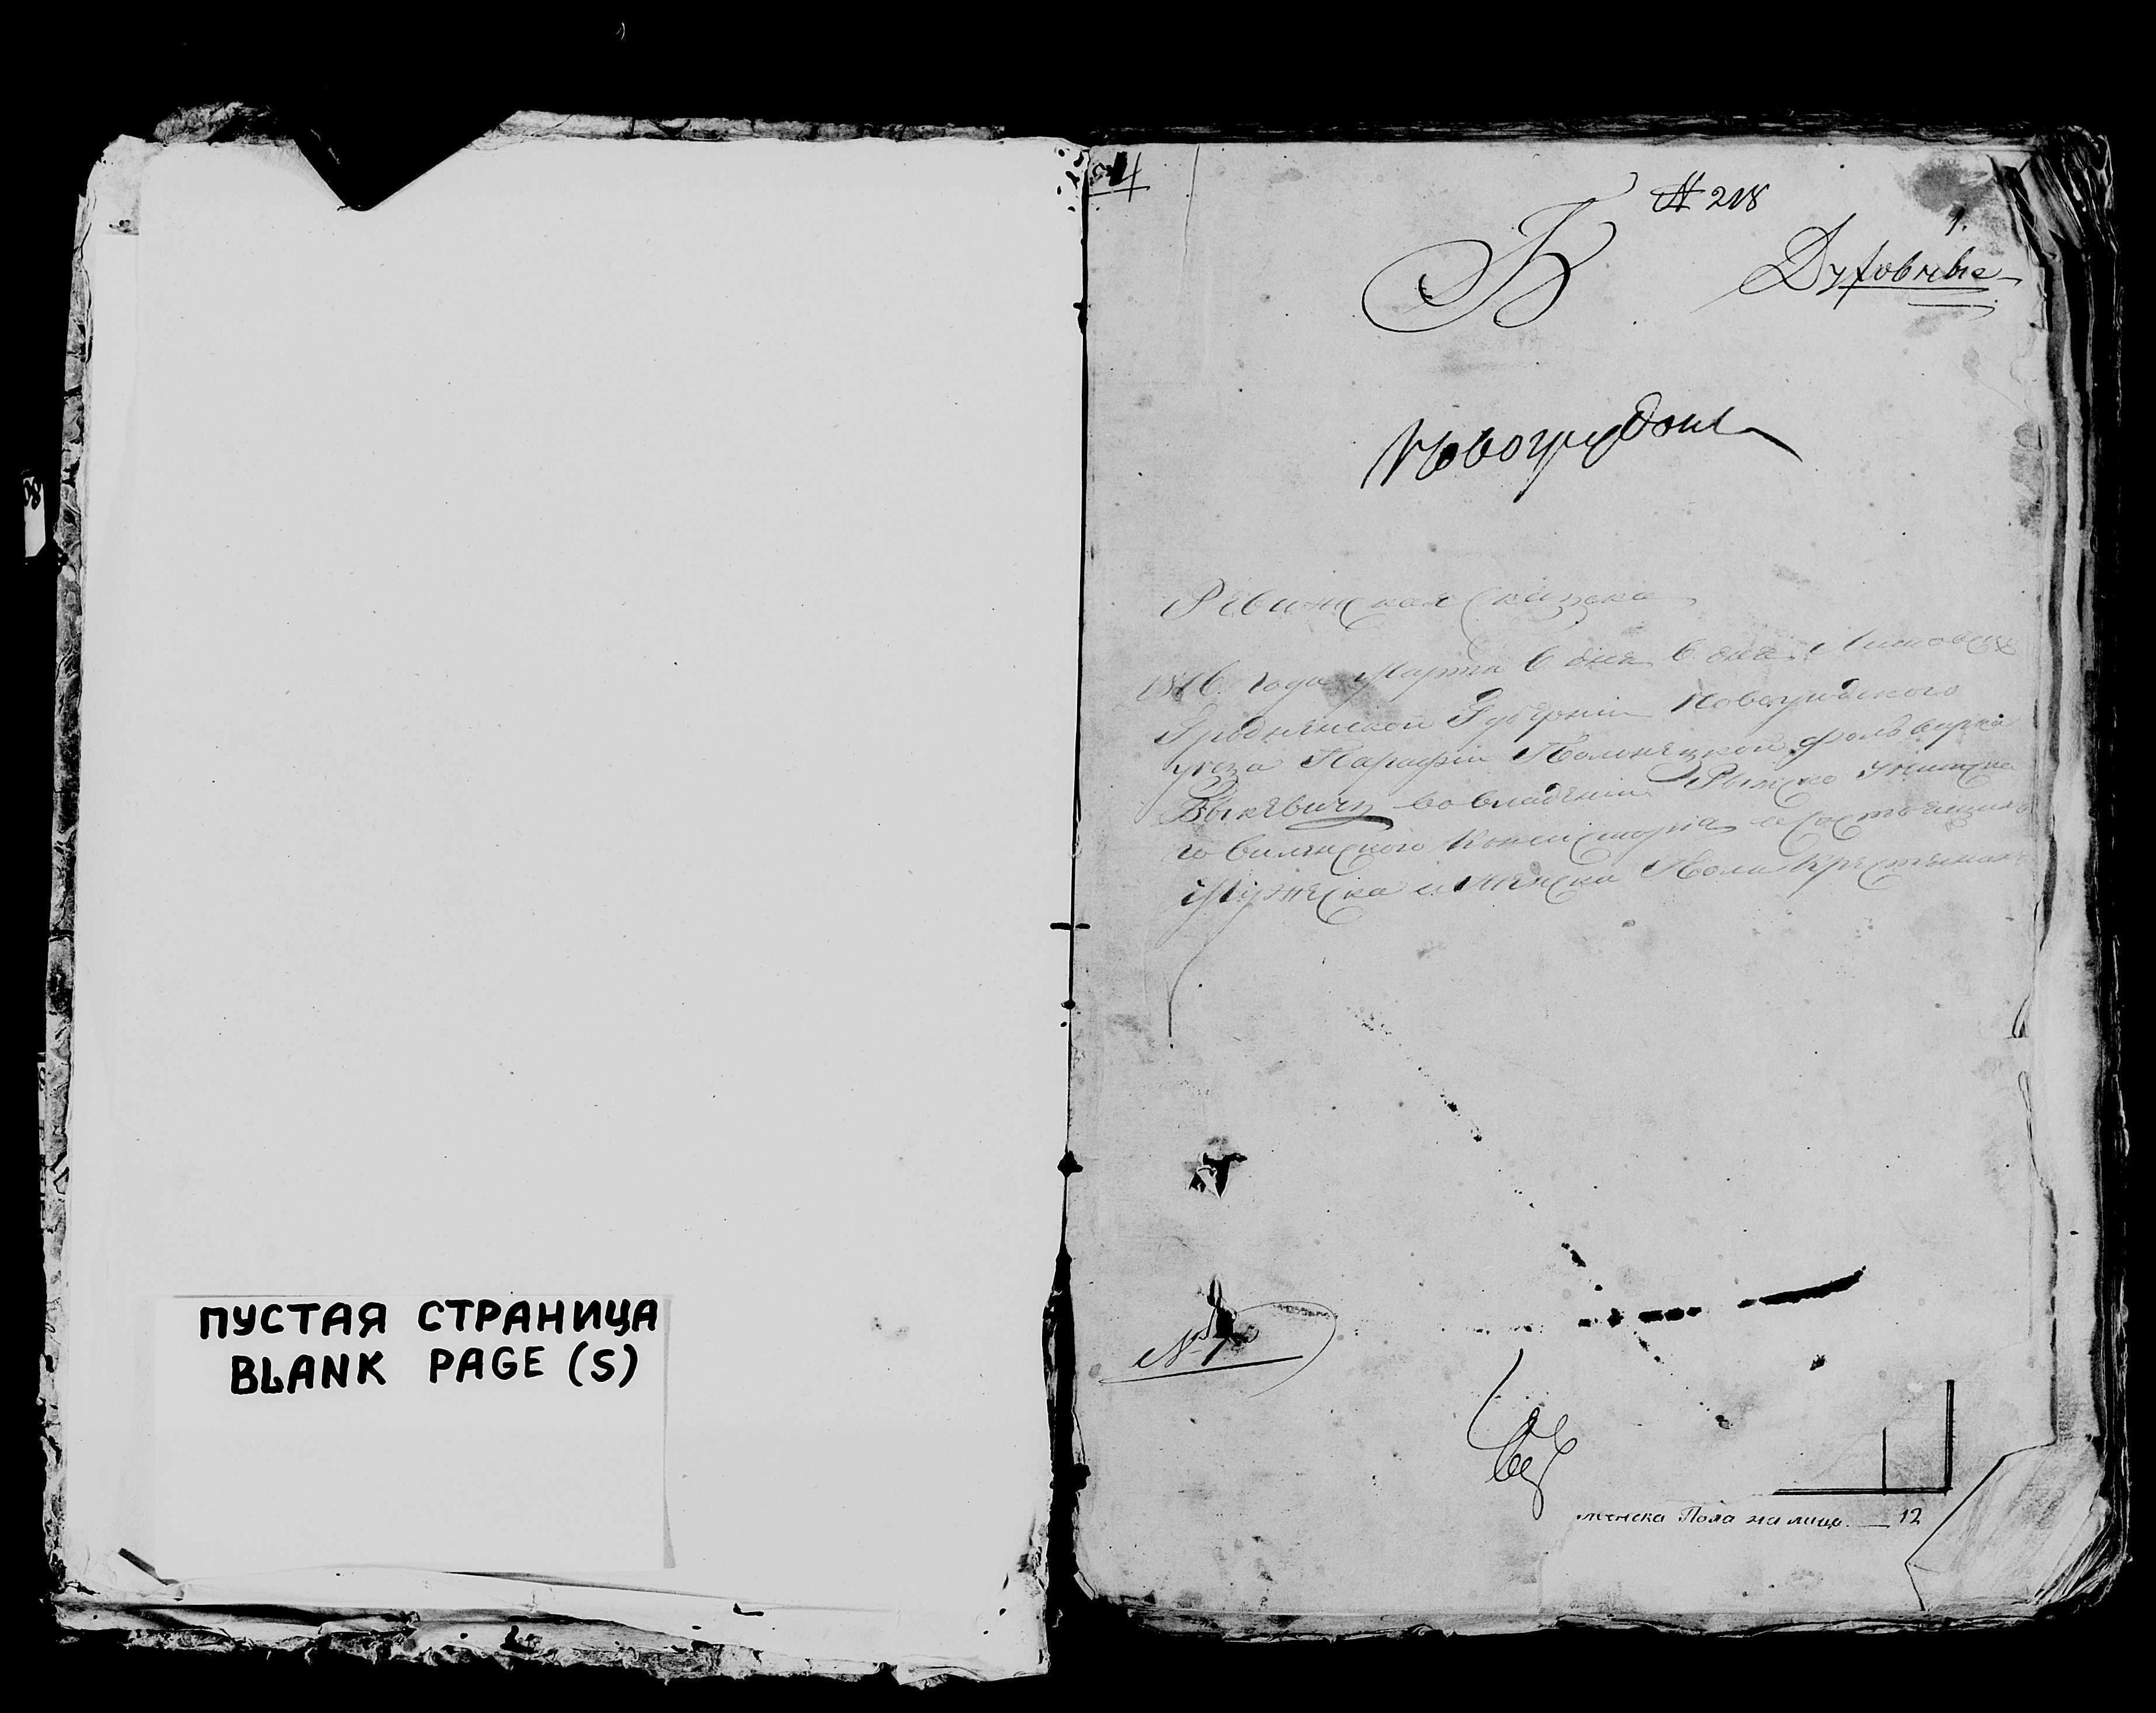 ПУСТАЯ СТРАНИЦА
BLANK PAGE (S)
№ 218
1.
Б
Духовные
Новогрудски
Ревижская Сказка
1816. года Марта 6 дня Литовско
Гродненской Губернии Новогрудского
уезда Парафіи фольварка
во владении Римско
го виленского Консисторіа и состоящихъ
Мужеска и Женска Пола Крестьянахъ
№
женска Пола на лицо — 12